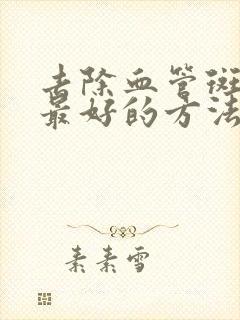 去除血管斑
最好的方法
素素雪